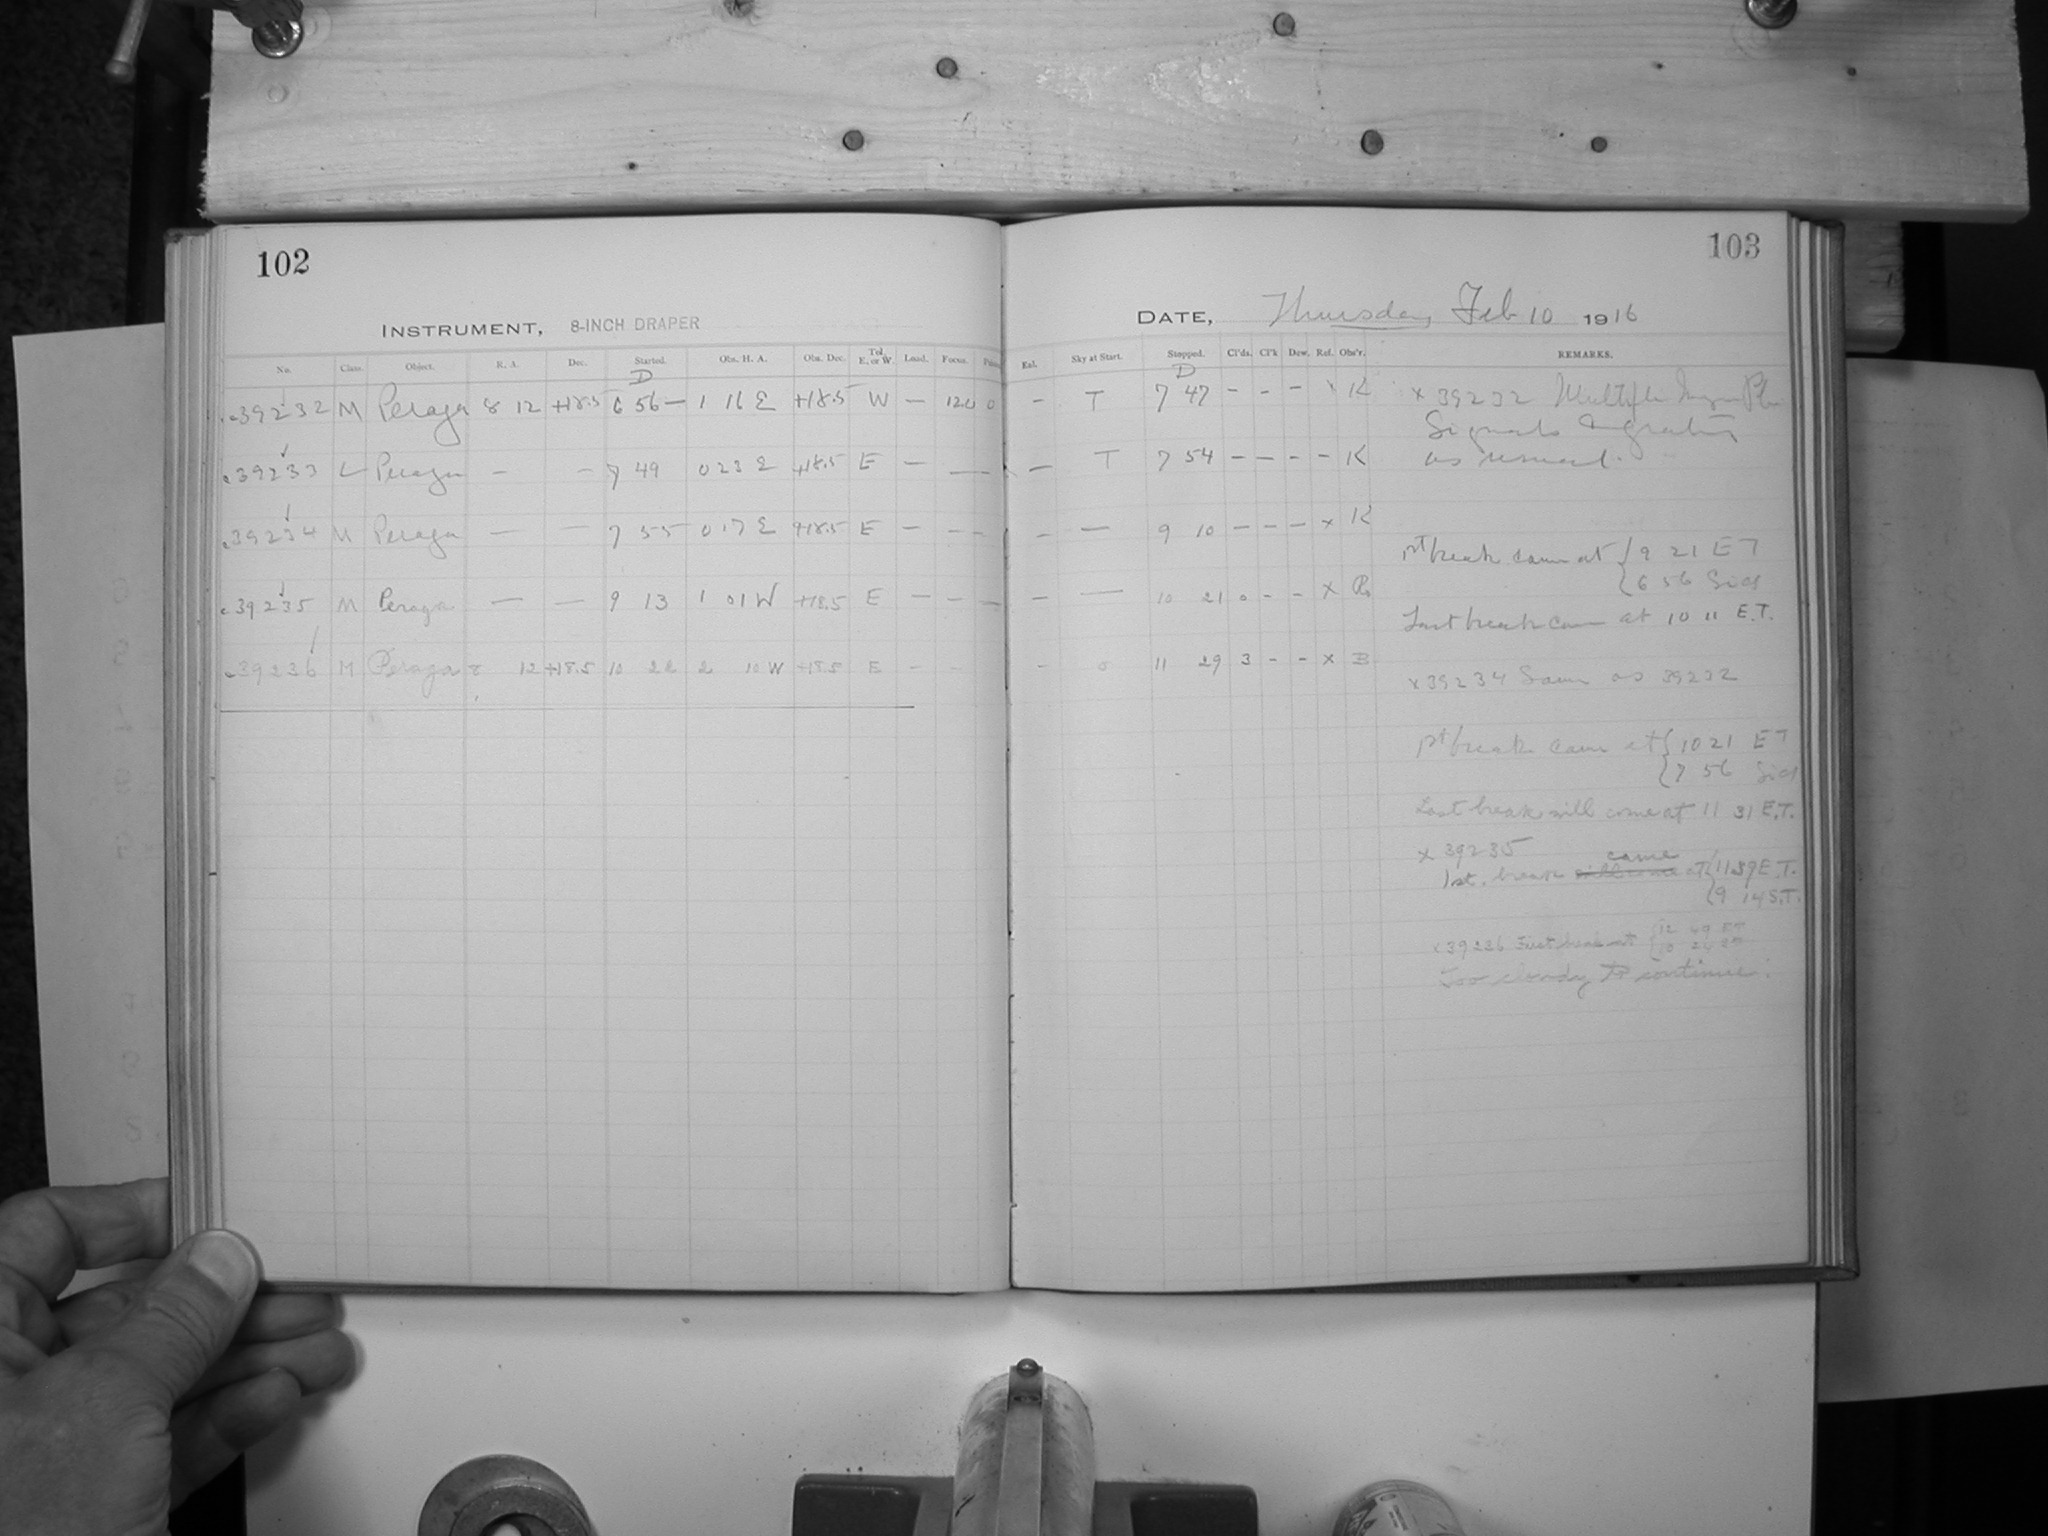 102
INSTRUMENT, 8-INCH DRAPER
No. Class. Object. R. A. Dec. Started. Obs. H. A. Obs. Dec. Tel. E. or W. Load. Focus.
D
c39232 M Peraga 8 12 +18.5 6 56 — 1 16 E +18.5 W — 12.0 0
c39233 L Peraga — — 7 49 0 23 E +18.5 E — — —
c39234 M Peraga — — 7 55 0 17 E +18.5 E — — —
c39235 M Peraga — — 9 13 1 01 W +18.5 E — — —
c39236 M Peraga 8 12 +18.5 10 22 2 10 W +18.5 E — —
103
DATE, Thursday Feb 10 1916
Exl. Sky at Start. Stopped. Cl'ds. Cl'k Dew. Ref. Obs'r. REMARKS.
D
— T 7 47 — — — x K
— T 7 54 — — — — K
— — 9 10 — — — x K
— — 10 21 0 — — x
— 0 11 29 3 — — x B
x 39232 Multiple
Signals &
as usual.
1st break came at { 9 21 E T
{ 6 56 Sid
Last break came at 10 11 E.T.
x39234 Same as 39232
1st break came at { 10 21 E T
{ 7 56 Sid
Last break will come at 11 31 E.T.
x 39235
came
1st. break will come at { 11 39 E.T.
{ 9 14 S.T.
x39236 First break at
Too cloudy to continue.